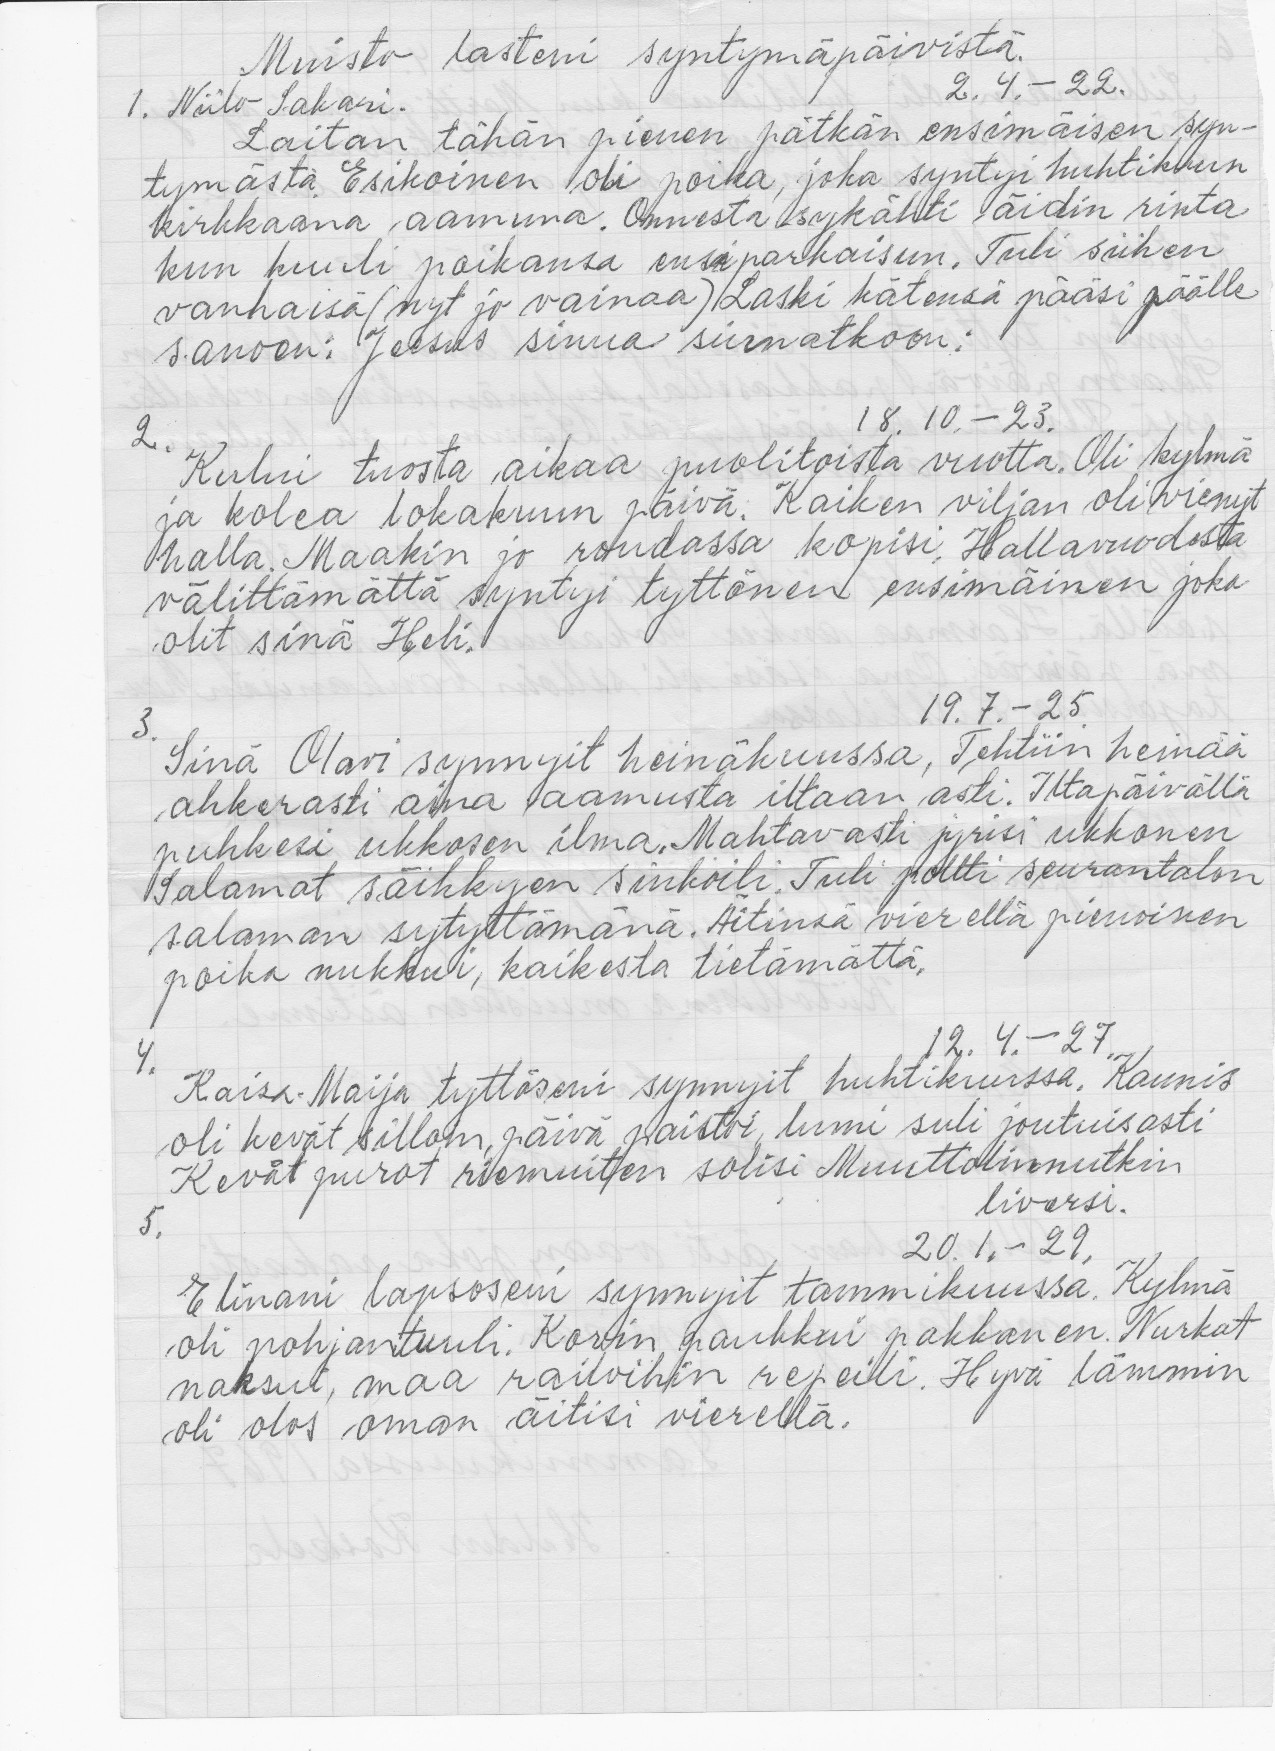 Muisto lasteni syntymäpäivistä.
2. 4. – 22.
1. Niilo Sakari.
Laitan tähän pienen pätkän ensimäisen syn-
tymästä. Esikoinen oli poika, joka syntyi huhtikuun
kirkkaana aamuna. Onnesta sykähti äidin rinta
kun kuuli poikansa ensiparkaisun. Tuli siihen
vanhaisä (nyt jo vainaa) Laski kätensä pääsi päälle
sanoen: Jeesus sinua siunatkoon:
2.
18. 10. – 23.
Kului tuosta aikaa puolitoista vuotta. Oli kylmä
ja kolea lokakuun päivä. Kaiken viljan oli vienyt
halla. Maakin jo roudassa kopisi. Hallavuodesta
välittämättä syntyi tyttönen ensimäinen joka
olit sinä Heli.
3.
19. 7. – 25.
Sinä Olavi synnyit heinäkuussa, Tehtiin heinää
ahkerasti aina aamusta iltaan asti. Iltapäivällä
puhkesi ukkosen ilma. Mahtavasti jyrisi ukkonen
Salamat säihkyen sinkoili. Tuli poltti seurantalon
salaman sytyttämänä. Äitinsä vierellä pienoinen
poika nukkui, kaikesta tietämättä.
4.
12. 4. – 27.
Kaisa-Maija tyttöseni synnyit huhtikuussa. Kaunis
oli kevät silloin, päivä paistoi, lumi suli joutuisasti
Kevät purot riemuiten solisi Muuttolinnutkin
liversi.
5.
20. 1. – 29.
Elinani lapsoseni synnyit tammikuussa. Kylmä
oli pohjantuuli. Kovin paukkui pakkanen. Nurkat
naksui, maa railoihin repeili. Hyvä lämmin
oli olos oman äitisi vierellä.